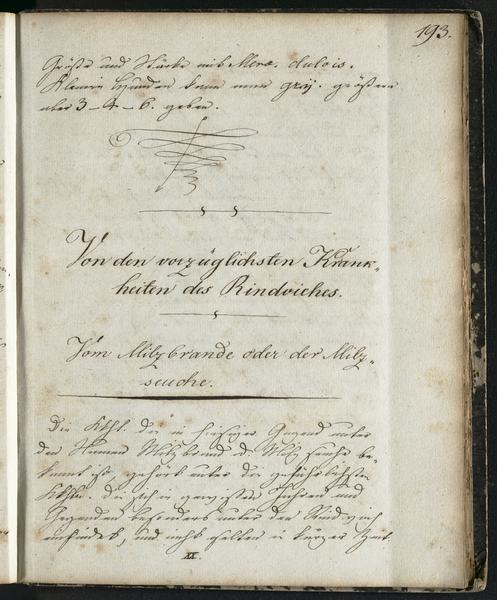 193.
Größe und Stärke mit Merc. dulcis.
Kleinen Hunden kann man grjj. größern
aber 3_4_6. geben.
Von den vorzüglichsten Krank-
heiten des Rindviehes.
Vom Milzbrande oder der Milz-
seuche.
Die Kkht. die in hiesiger Gegend unter
den Namen Milzbrand d. Milzseuche be-
kannt ist, gehört unter die gefährlichsten
Kkht. die sich in gewissen Jahren und
Gegenden besonders unter den Rindvieh
einfindet, und nicht selten in kurzer Zeit